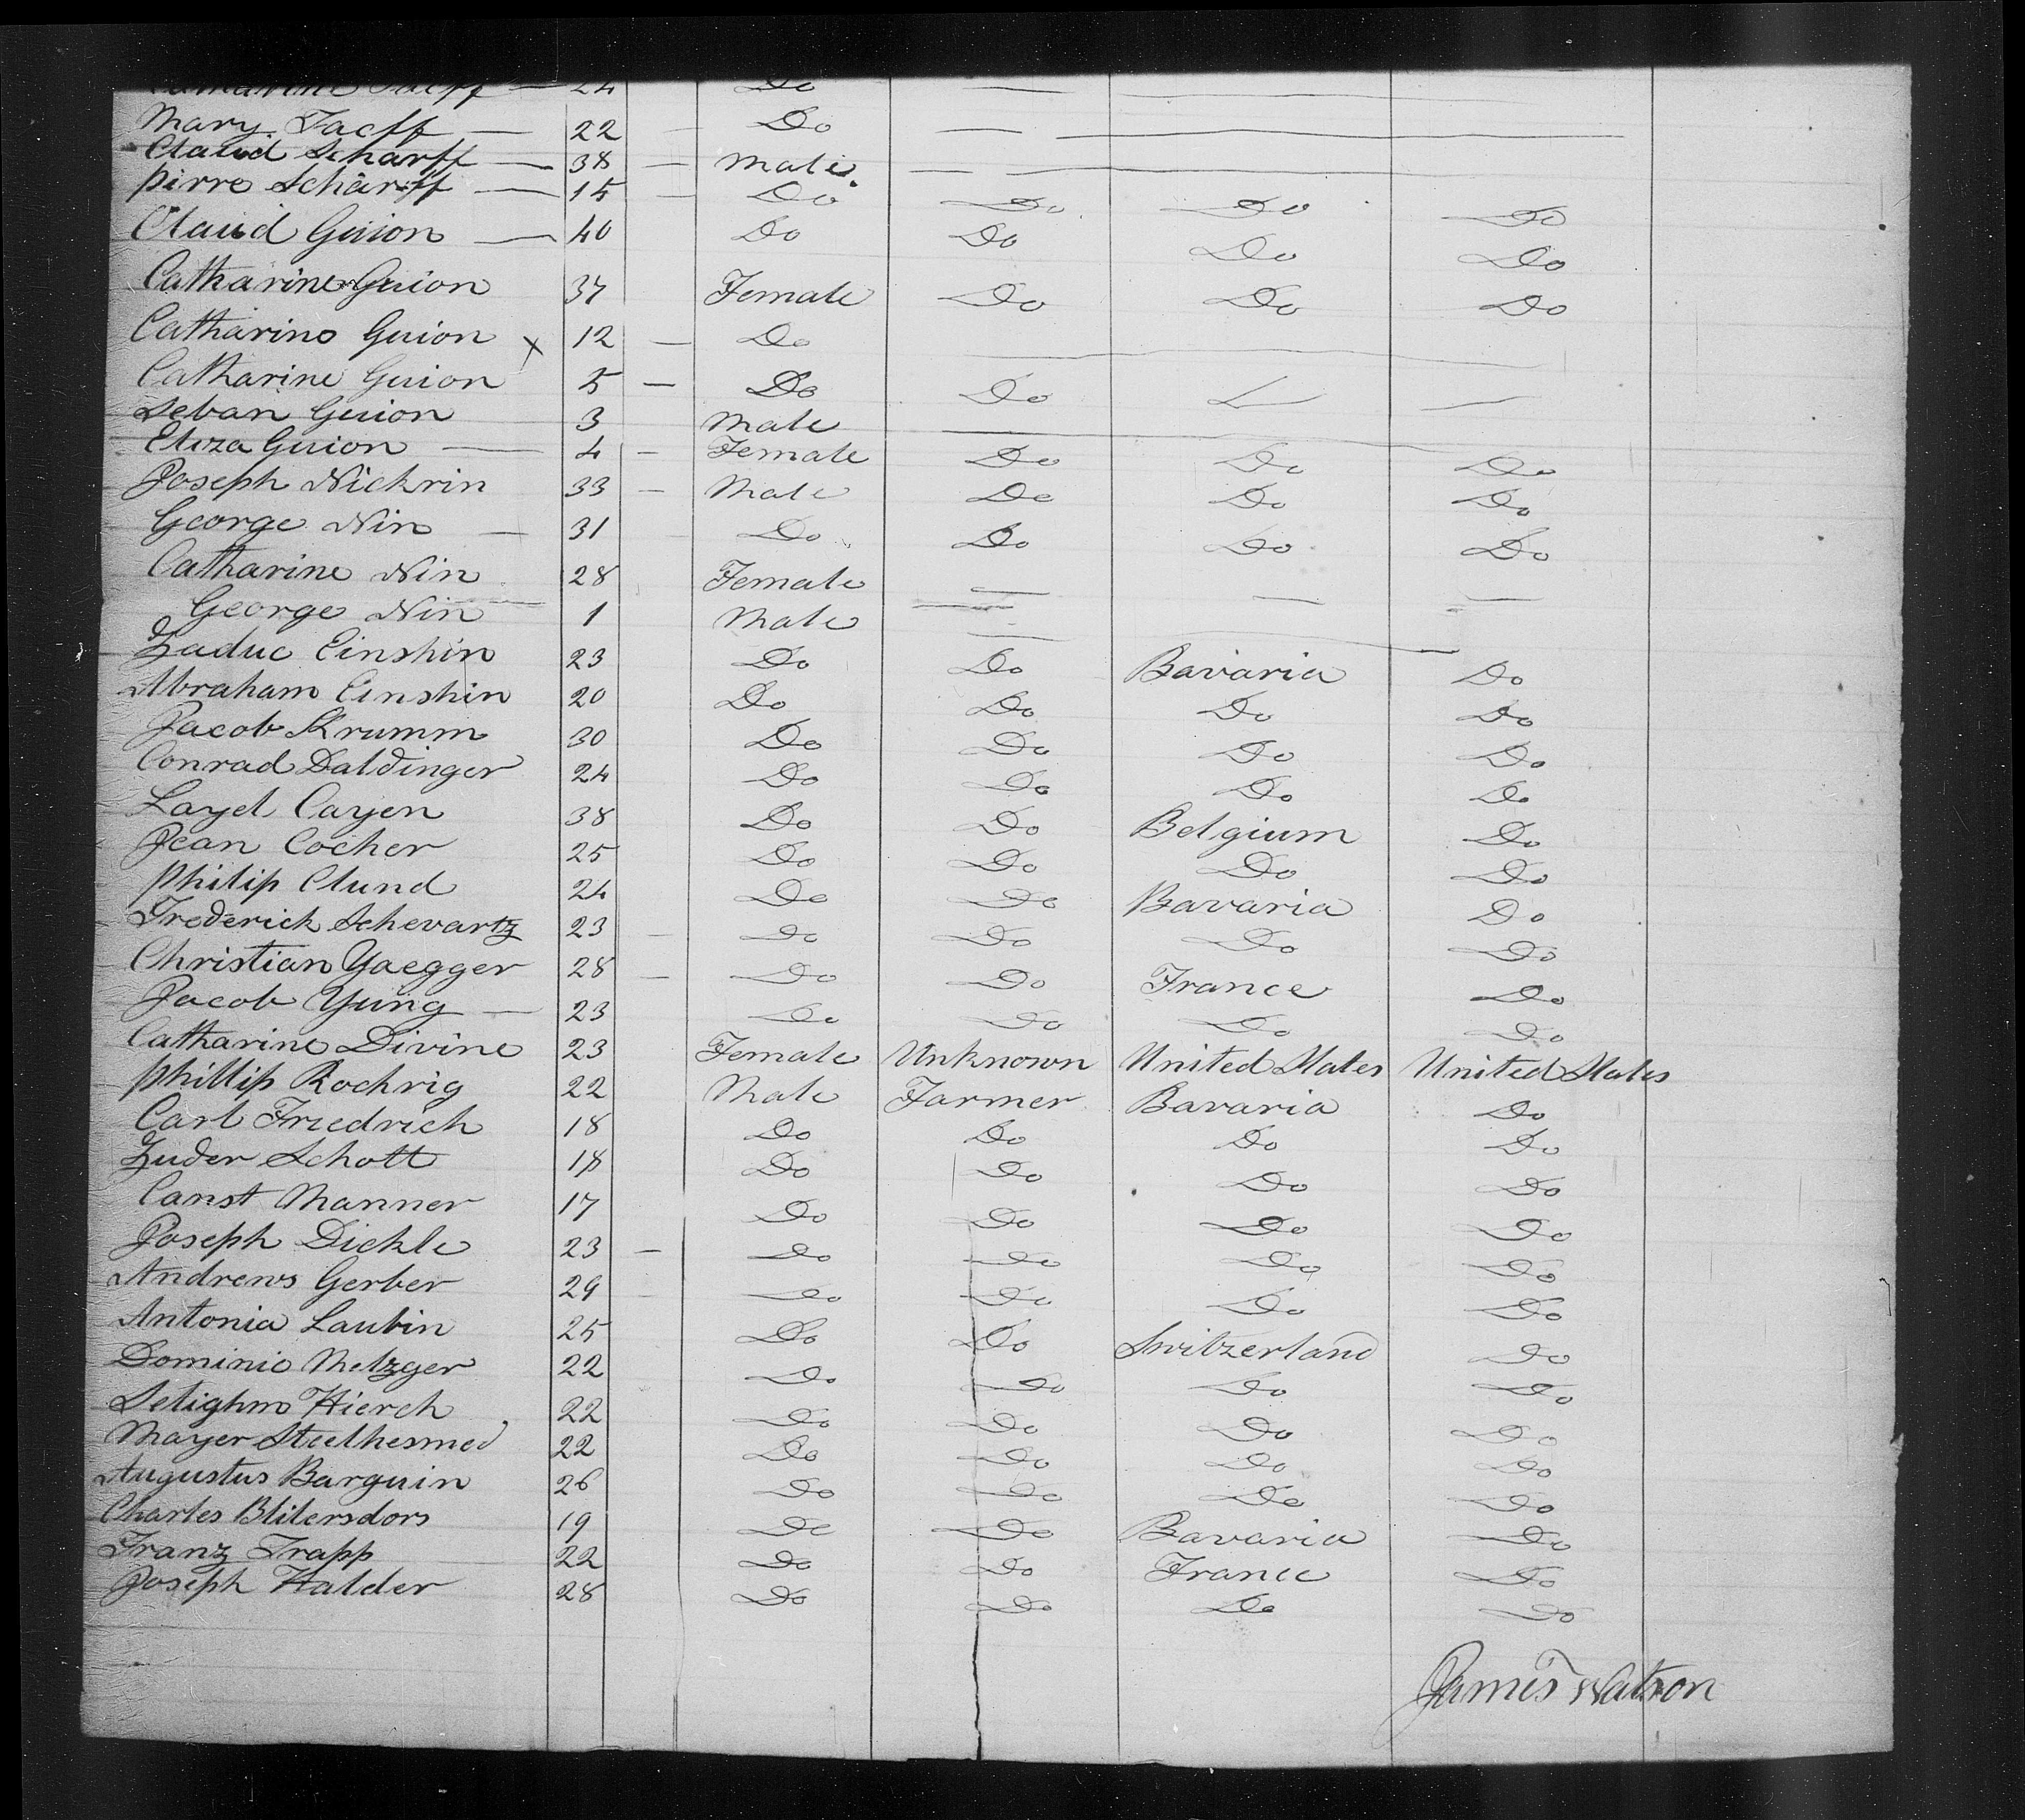 24 Do
Mary Taeff 22 Do
Claud Scharff 38 Male
Pirre Schariff 15 Do Do Do Do
Claud Guion 40 Do Do Do Do
Catharine Guion 37 Female Do Do Do
Catharine Guion x 12 Do
Catharine Guion 5 Do Do
Seban Guion 3 Male
Eliza Guion 4 Female Do Do Do
Joseph Nickrin 33 Male Do Do Do
George Nin 31 Do Do Do Do
Catharine Nin 28 Female
George Nin 1 Male
Zaduc Einshin 23 Do Do Bavaria Do
Abraham Einshin 20 Do Do Do Do
Jacob Krumm 30 Do Do Do Do
Conrad Daldinger 24 Do Do Do Do
Layel Cayen 38 Do Do Belgium Do
Jean Cocher 25 Do Do Do Do
Philip Clund 24 Do Do Bavaria Do
Frederick Schevartz 23 Do Do Do Do
Christian Yaegger 28 Do Do France Do
Jacob Yung 23 Do Do Do Do
Catharine Divine 23 Female Unknown United States United States
Phillip Rochrig 22 Male Farmer Bavaria Do
Carl Friedrich 18 Do Do Do Do
Zuder Schott 18 Do Do Do Do
Canst Manner 17 Do Do Do Do
Joseph Dickle 23 Do Do Do Do
Andrews Gerber 29 Do Do Do Do
Antonia Laubin 25 Do Do Switzerland Do
Dominic Metzger 22 Do Do Do Do
Selighm Hierch 22 Do Do Do Do
Mayer Steelhesmed 22 Do Do Do Do
Augustus Barguin 26 Do Do Do Do
Charles Blilersdors 19 Do Do Bavaria Do
Franz Trapp 22 Do Do France Do
Joseph Halder 28 Do Do Do Do
James Watson